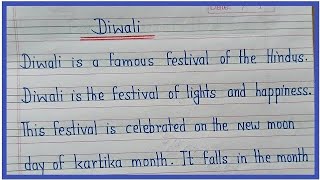 Date
Diwali
Diwali is a famous festival of the Hindus.
Diwali is the festival of lights and happiness.
This festival is celebrated on the new moon
day of kartika month. It falls in the month